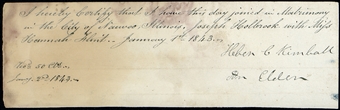 I hereby Certify that I have this day joined in Matrimony
in the City of Nauvoo, Illinois, Joseph Holbrook with Miss
Hannah Flint.. January 1st 1843..
Heber C Kimball
an Elder
Jany. 2nd 1843